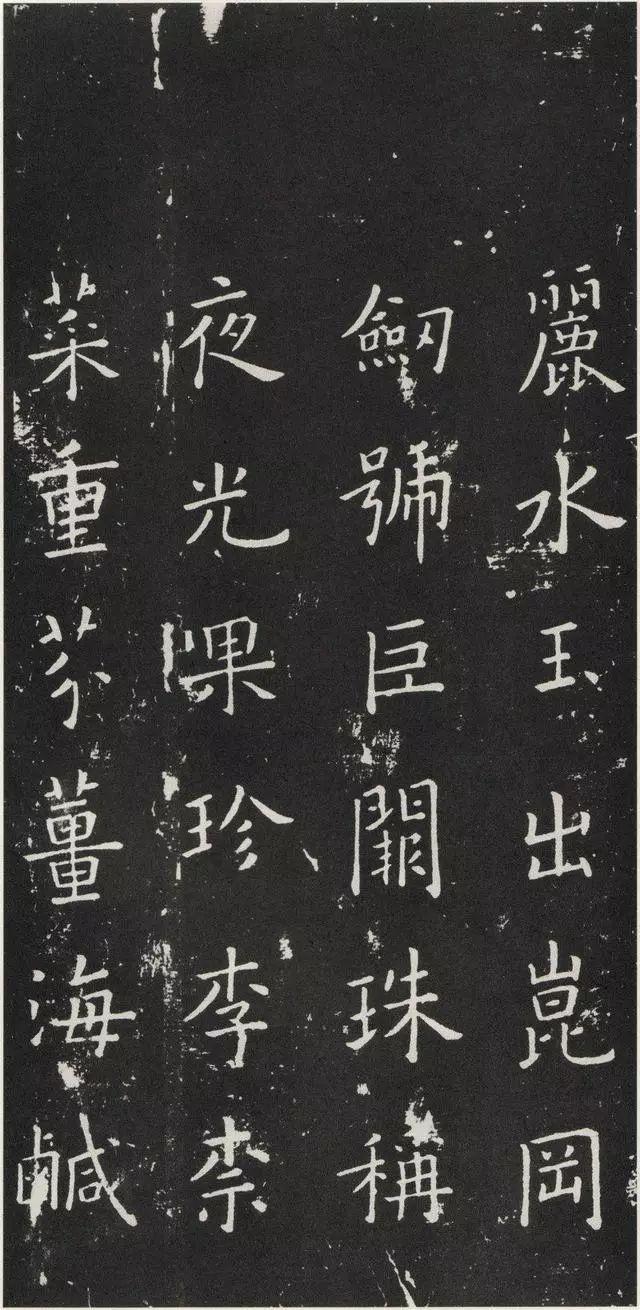 麗水玉出崑岡
劒號巨闕珠稱
夜光菓珍李柰
菜重芥薑海鹹